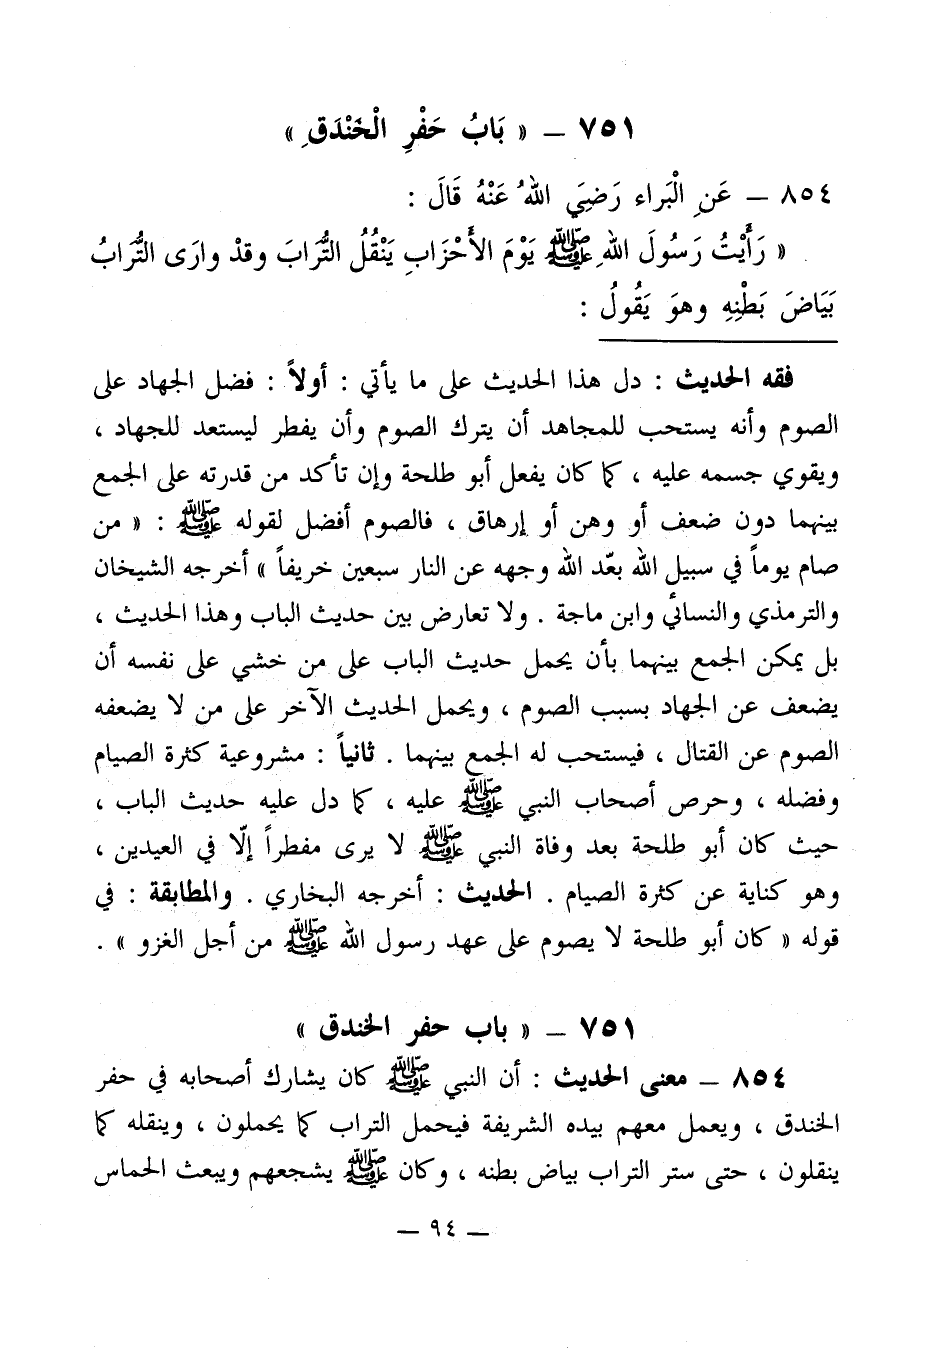 ٧٥١ – « بَابُ حَفْرِ الْخَنْدَقِ »
٨٥٤ – عَنِ الْبَراء رَضِيَ اللهُ عَنْهُ قَالَ :
« رَأَيْتُ رَسُولَ اللهِ ﷺ يَوْمَ الأَحْزَابِ يَنْقُلُ التُّرَابَ وقدْ وارَى التُّرَابُ
بَيَاضَ بَطْنِهِ وهوَ يَقُولُ :
فقه الحديث : دل هذا الحديث على ما يأتي : أولاً : فضل الجهاد على
الصوم وأنه يستحب للمجاهد أن يترك الصوم وأن يفطر ليستعد للجهاد ،
ويقوي جسمه عليه ، كما كان يفعل أبو طلحة وإن تأكد من قدرته على الجمع
بينهما دون ضعف أو وهن أو إرهاق ، فالصوم أفضل لقوله ﷺ : « من
صام يوماً في سبيل الله بعّد الله وجهه عن النار سبعين خريفاً » أخرجه الشيخان
والترمذي والنسائي وابن ماجة . ولا تعارض بين حديث الباب وهذا الحديث ،
بل يمكن الجمع بينهما بأن يحمل حديث الباب على من خشي على نفسه أن
يضعف عن الجهاد بسبب الصوم ، ويحمل الحديث الآخر على من لا يضعفه
الصوم عن القتال ، فيستحب له الجمع بينهما . ثانياً : مشروعية كثرة الصيام
وفضله ، وحرص أصحاب النبي ﷺ عليه ، كما دل عليه حديث الباب ،
حيث كان أبو طلحة بعد وفاة النبي ﷺ لا يرى مفطراً إلّا في العيدين ،
وهو كناية عن كثرة الصيام . الحديث : أخرجه البخاري . والمطابقة : في
قوله « كان أبو طلحة لا يصوم على عهد رسول الله ﷺ من أجل الغزو » .
٧٥١ – « باب حفر الخندق »
٨٥٤ – معنى الحديث : أن النبي ﷺ كان يشارك أصحابه في حفر
الخندق ، ويعمل معهم بيده الشريفة فيحمل التراب كما يحملون ، وينقله كما
ينقلون ، حتى ستر التراب بياض بطنه ، وكان ﷺ يشجعهم ويبعث الحماس
– ٩٤ –